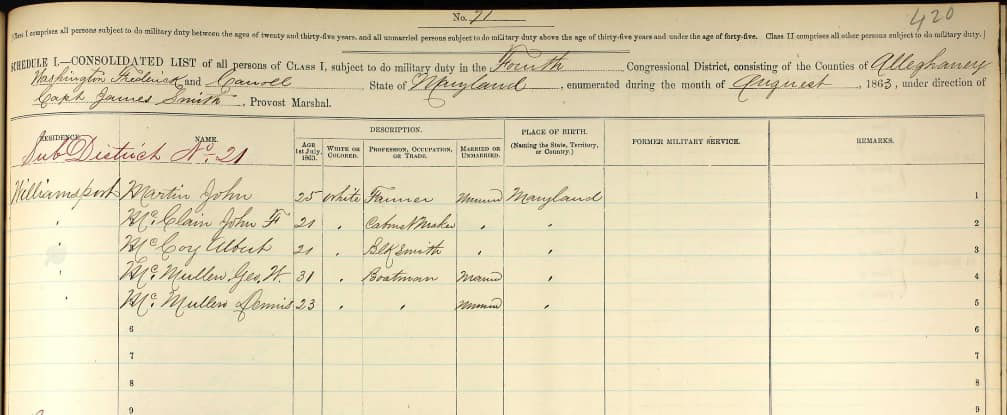 No. 71
420
Class I comprises all persons subject to do military duty between the ages of twenty and thirty-five years, and all unmarried persons subject to do military duty above the age of thirty-five years and under the age of forty-five. Class II comprises all other persons subject to do military duty.)
SCHEDULE I.—CONSOLIDATED LIST of all persons of CLASS I, subject to do military duty in the Fourth Congressional District, consisting of the Counties of Alleghaney
Washington Frederick and Carroll State of Maryland, enumerated during the month of August, 1863, under direction of
Capt James Smith, Provost Marshal.
RESIDENCE. NAME. DESCRIPTION. PLACE OF BIRTH. FORMER MILITARY SERVICE. REMARKS.
AGE 1st July, 1863. WHITE OR COLORED. PROFESSION, OCCUPATION, OR TRADE. MARRIED OR UNMARRIED. (Naming the State, Territory, or Country.)
Sub District No. 21
Williamsport Martin John 25 White Farmer Maryland 1
" Mc Clain John F 21 " Cabinet Maker " " 2
" Mc Coy Albert 21 " Blk Smith " " 3
" Mc Mullen Geo. W. 31 " Boatman Married " 4
" Mc Mullen Dennis 23 " " " 5
6 6
7 7
8 8
9 9